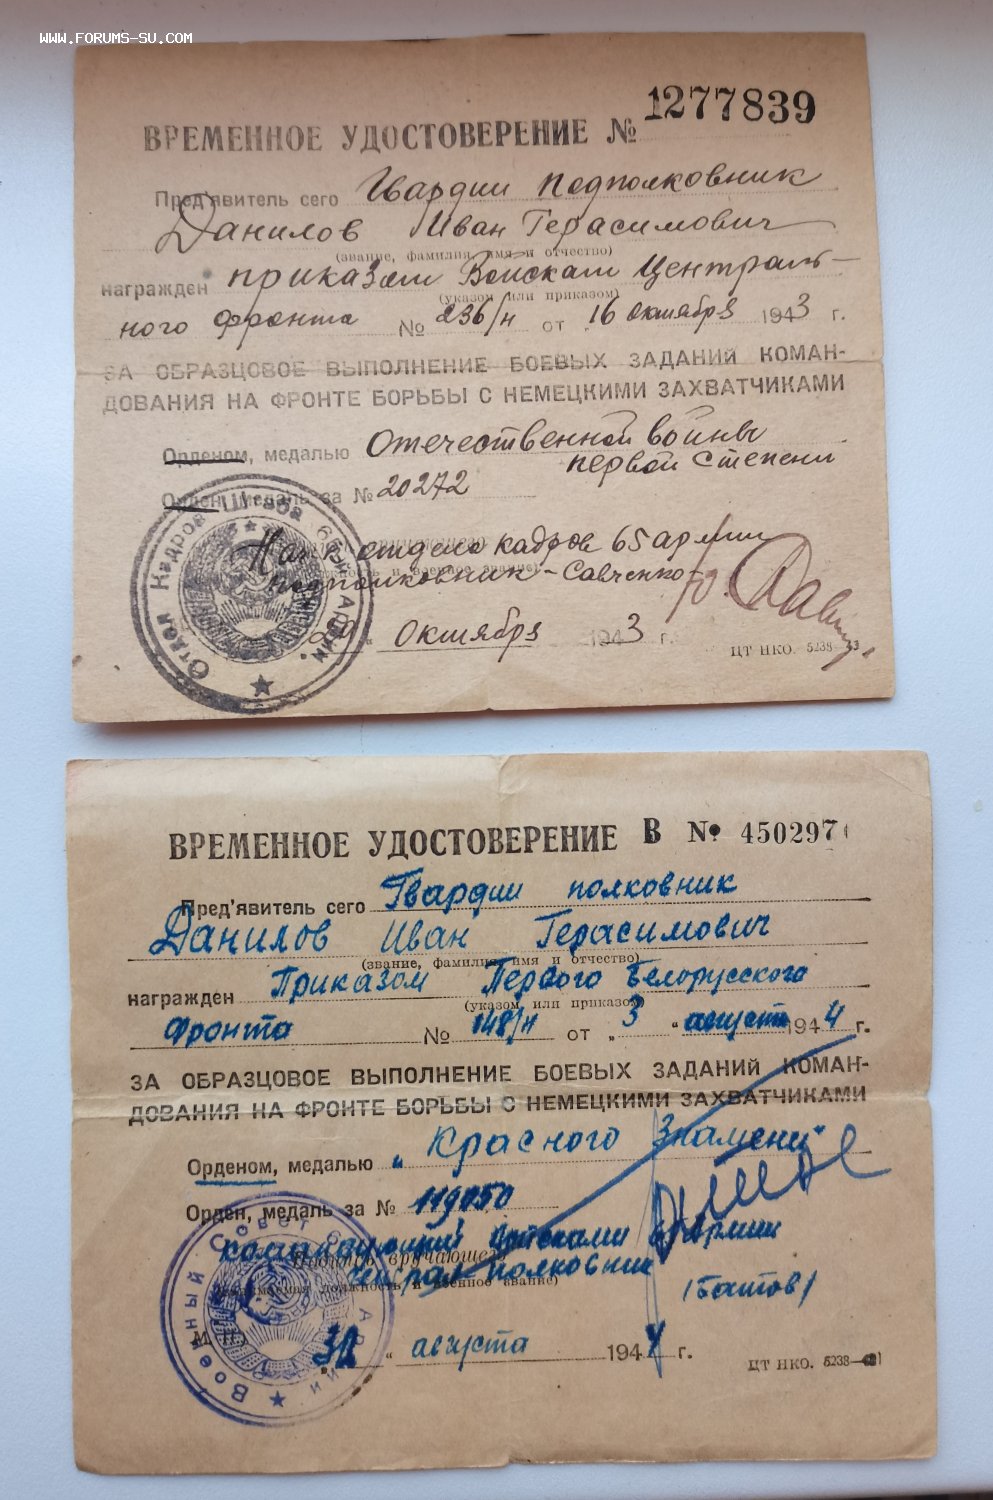 WWW.FORUMS-SU.COM
ВРЕМЕННОЕ УДОСТОВЕРЕНИЕ № 1277839
Пред'явитель сего Гвардии подполковник
Данилов Иван Герасимович
(звание, фамилия, имя и отчество)
награжден приказом Войскам Централь-
(указом или приказом)
ного фронта № 236/н от „ 16 октября 1943 г.
ЗА ОБРАЗЦОВОЕ ВЫПОЛНЕНИЕ БОЕВЫХ ЗАДАНИЙ КОМАН-
ДОВАНИЯ НА ФРОНТЕ БОРЬБЫ С НЕМЕЦКИМИ ЗАХВАТЧИКАМИ
Орденом, медалью Отечественной войны
первой степени
Орден, медаль за № 20272
Отдел Кадров Штаба 65 Армии
Нач. отдела кадров 65 армии
подполковник – Савченко
29 „ Октября 1943 г.
ЦТ НКО. 5238—43
ВРЕМЕННОЕ УДОСТОВЕРЕНИЕ В № 450297
Пред'явитель сего Гвардии полковник
Данилов Иван Герасимович
(звание, фамилия, имя и отчество)
награжден Приказом Первого Белорусского
(указом или приказом)
Фронта № 148/н от „ 3 „ август 1944 г.
ЗА ОБРАЗЦОВОЕ ВЫПОЛНЕНИЕ БОЕВЫХ ЗАДАНИЙ КОМАН-
ДОВАНИЯ НА ФРОНТЕ БОРЬБЫ С НЕМЕЦКИМИ ЗАХВАТЧИКАМИ
Орденом, медалью „Красного Знамени"
Орден, медаль за № 119050
командующий войсками армии
Подпись вручающего
генерал-полковник
должность и военное звание)
(Батов)
Военный Совет Армии
М. П.
„ августа 1944 г.
ЦТ НКО. 5238—